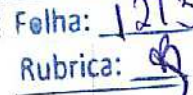 Folha: 1213
Rubrica: